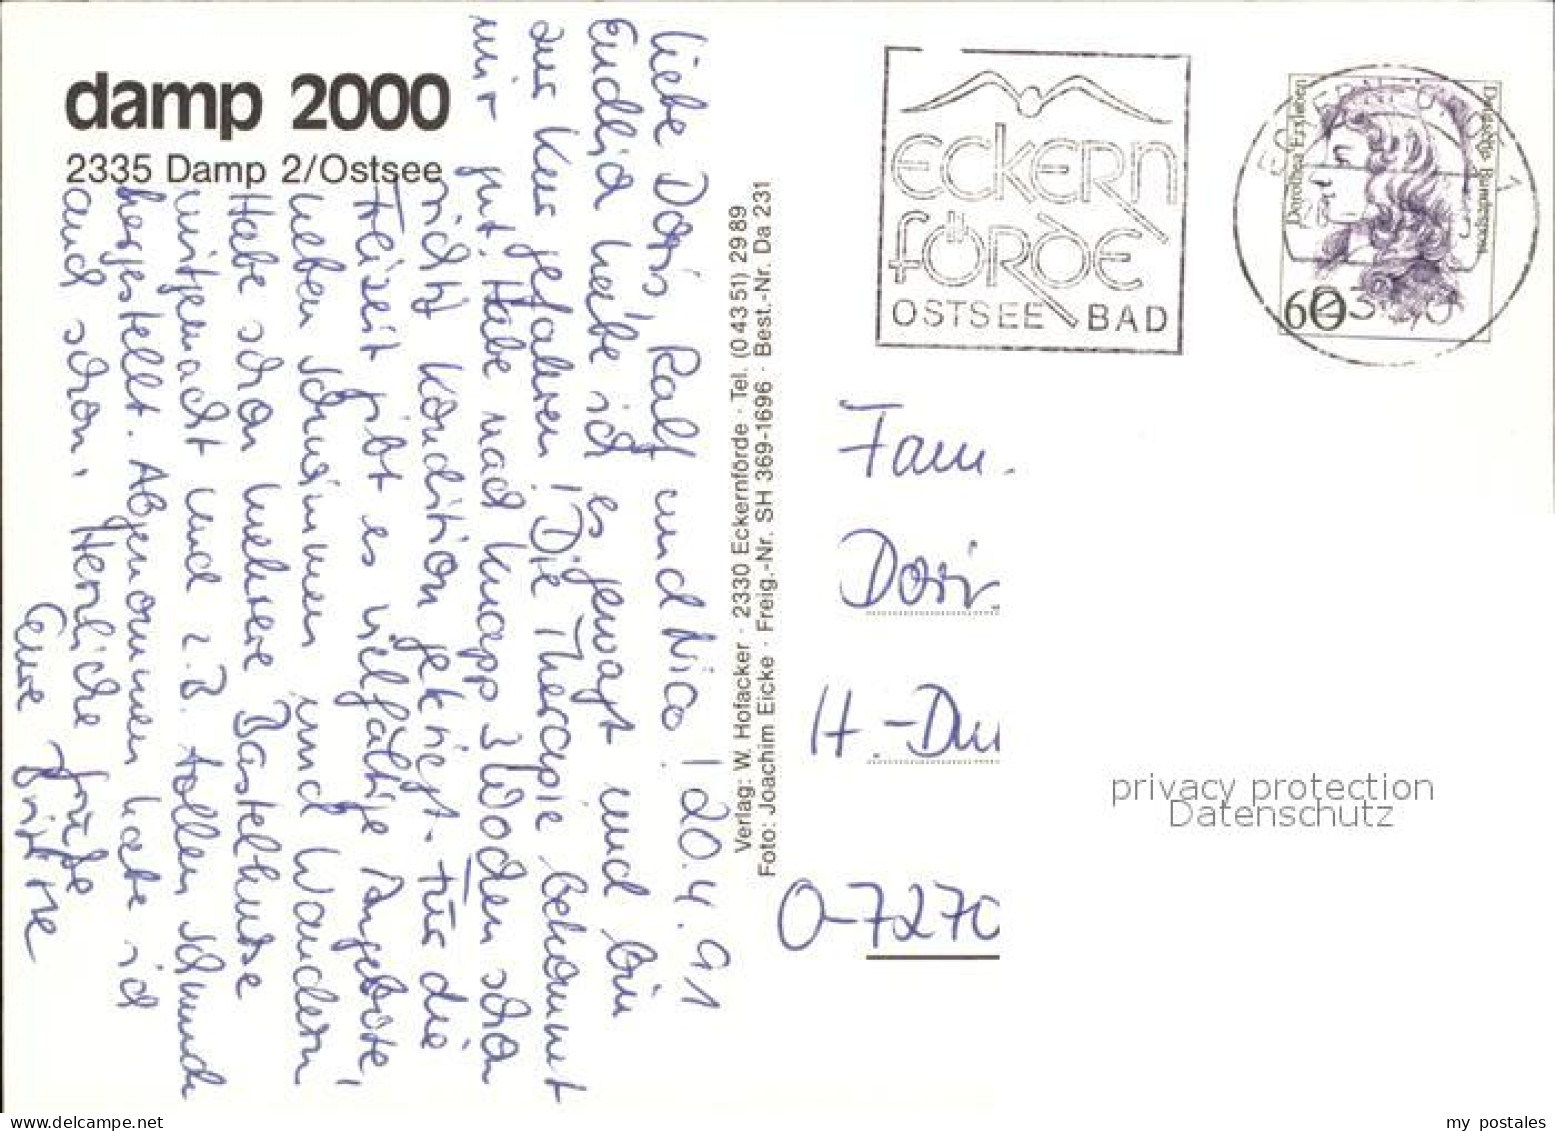 damp 2000
2335 Damp 2/Ostsee
liebe Doris, Ralf und Nico! 20.4.91
Endlich habe ich es gewagt und bin
zur Kur gefahren! Die Therapie bekommt
mir gut. Habe nach knapp 3 Wochen schon
richtig Kondition gekriegt. Für die
Freizeit gibt es vielfältige Angebote,
neben schwimmen und wandern!
Habe schon mehrere Bastelkurse
mitgemacht und z.B. tollen Schmuck
hergestellt. Abgenommen habe ich
auch schon. Herzliche Grüße
Eure
Verlag: W. Hofacker · 2330 Eckernförde · Tel. (0 43 51) 29 89
Foto: Joachim Eicke · Freig.-Nr. SH 369-1696 · Best.-Nr. Da 231
ECKERN
FÖRDE
OSTSEE BAD
Deutsche Bundespost
Dorothea Erxleben
60
Fam.
Doris
H.-Du
O-7270
privacy protection
Datenschutz
www.delcampe.net
my_postales